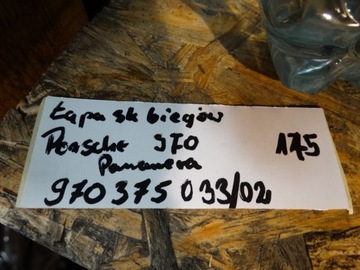 Łapa sk biegów
Porsche 970 175
Panamera
970 375 033/02